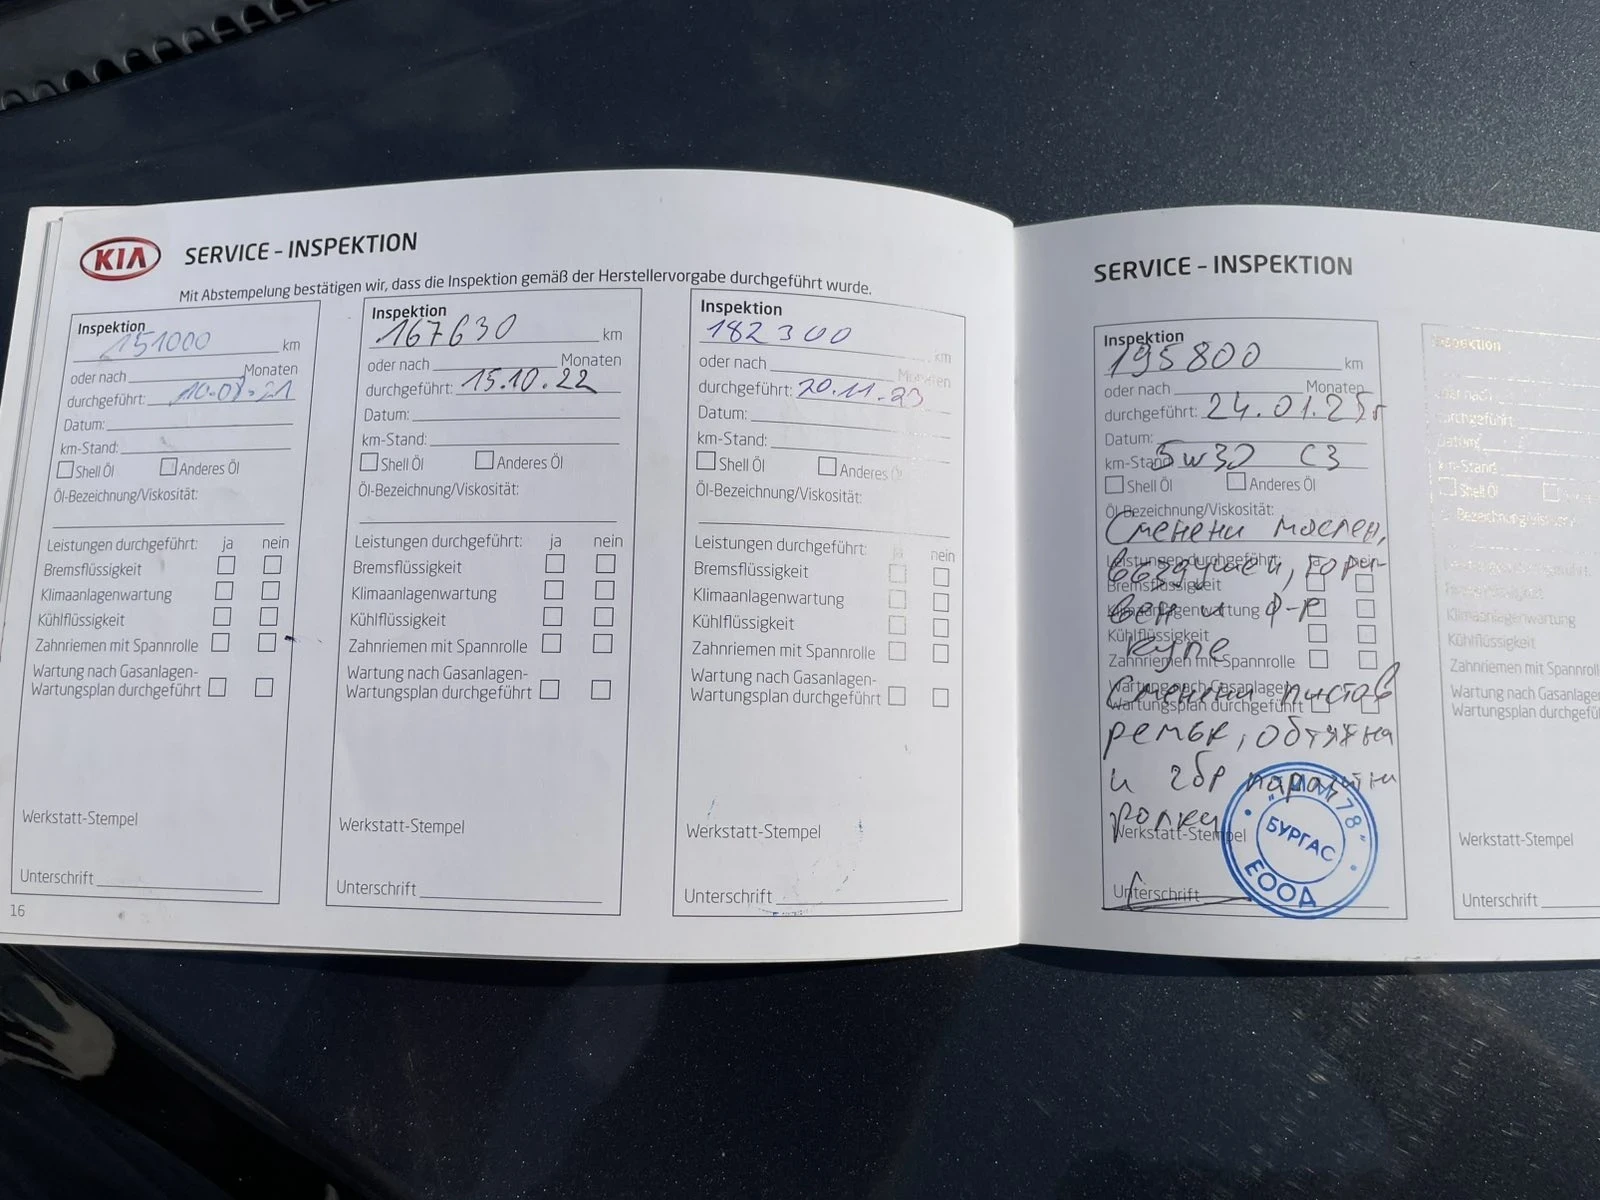 KIA
SERVICE - INSPEKTION
Mit Abstempelung bestätigen wir, dass die Inspektion gemäß der Herstellervorgabe durchgeführt wurde.
Inspektion
151000 km
oder nach Monaten
durchgeführt: 10.08.21
Datum:
km-Stand:
Shell Öl Anderes Öl
Öl-Bezeichnung/Viskosität:
Leistungen durchgeführt: ja nein
Bremsflüssigkeit
Klimaanlagenwartung
Kühlflüssigkeit
Zahnriemen mit Spannrolle
Wartung nach Gasanlagen-
Wartungsplan durchgeführt
Werkstatt-Stempel
Unterschrift
16
Inspektion
167630 km
oder nach Monaten
durchgeführt: 15.10.22
Datum:
km-Stand:
Shell Öl Anderes Öl
Öl-Bezeichnung/Viskosität:
Leistungen durchgeführt: ja nein
Bremsflüssigkeit
Klimaanlagenwartung
Kühlflüssigkeit
Zahnriemen mit Spannrolle
Wartung nach Gasanlagen-
Wartungsplan durchgeführt
Werkstatt-Stempel
Unterschrift
Inspektion
182300 km
oder nach Monaten
durchgeführt: 20.11.23
Datum:
km-Stand:
Shell Öl Anderes Öl
Öl-Bezeichnung/Viskosität:
Leistungen durchgeführt: ja nein
Bremsflüssigkeit
Klimaanlagenwartung
Kühlflüssigkeit
Zahnriemen mit Spannrolle
Wartung nach Gasanlagen-
Wartungsplan durchgeführt
Werkstatt-Stempel
Unterschrift
SERVICE - INSPEKTION
Inspektion
195800 km
oder nach Monaten
durchgeführt: 24.01.25г
Datum:
km-Stand 5w30 C3
Shell Öl Anderes Öl
Öl-Bezeichnung/Viskosität:
Сменени маслен,
Leistungen durchgeführt:
въздушен, гори-
Bremsflüssigkeit
вен и ф-р
Klimaanlagenwartung
Kühlflüssigkeit
купе
Zahnriemen mit Spannrolle
Wartung nach Gasanlagen-
Сменени пистов
Wartungsplan durchgeführt
ремък, обтяжна
и 2бр паразитни
ролки
Werkstatt-Stempel
78"
БУРГАС
ЕООД
Unterschrift
Inspektion
oder nach
durchgeführt:
Datum:
km-Stand
Shell Öl
Klimaanlagenwartung
Kühlflüssigkeit
Zahnriemen mit Spannroll
Wartung nach Gasanlagen
Wartungsplan durchgefü
Werkstatt-Stempel
Unterschrift